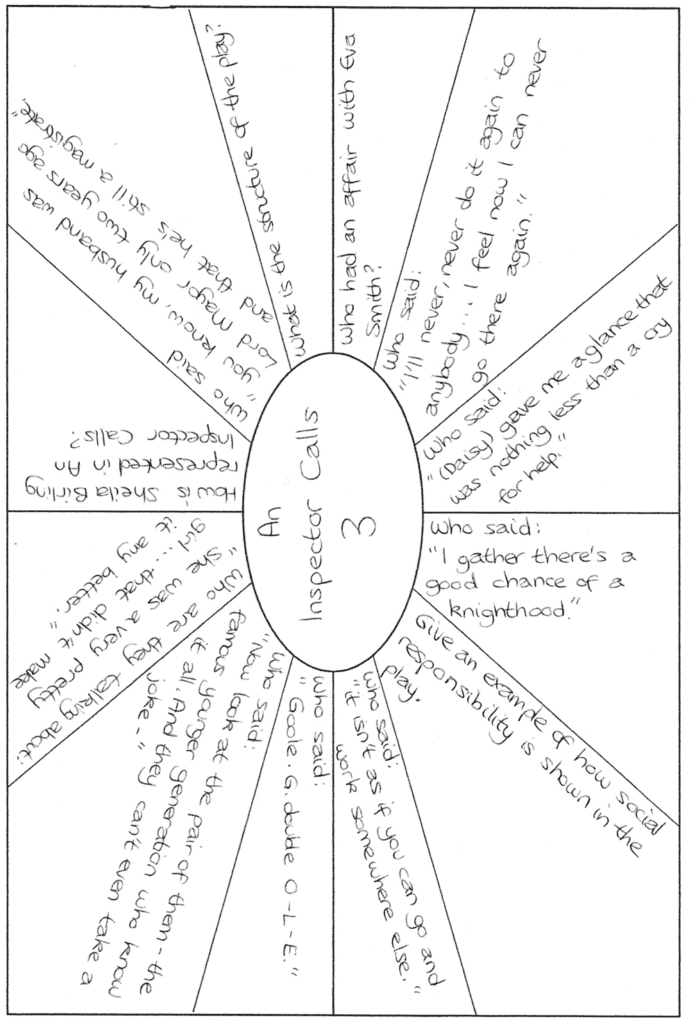 An
Inspector Calls
3
Who had an affair with Eva
Smith?
Who said:
"I'll never, never do it again to
anybody... I feel now I can never
go there again."
Who said:
"(Daisy) gave me a glance that
was nothing less than a cry
for help."
Who said:
"I gather there's a
good chance of a
knighthood."
Give an example of how social
responsibility is shown in the
play.
Who said:
"it isn't as if you can go and
work somewhere else."
Who said:
"Goole. G. double O-L-E."
Who said:
"Now look at the pair of them - the
famous younger generation who know
it all. And they can't even take a
joke -"
Who are they talking about:
"She was a very pretty
girl... that didn't make
it any better."
How is Sheila Birling
represented in An
Inspector Calls?
Who said
"you know, my husband was
Lord Mayor only two years ago
and that he's still a magistrate".
What is the structure of the play?